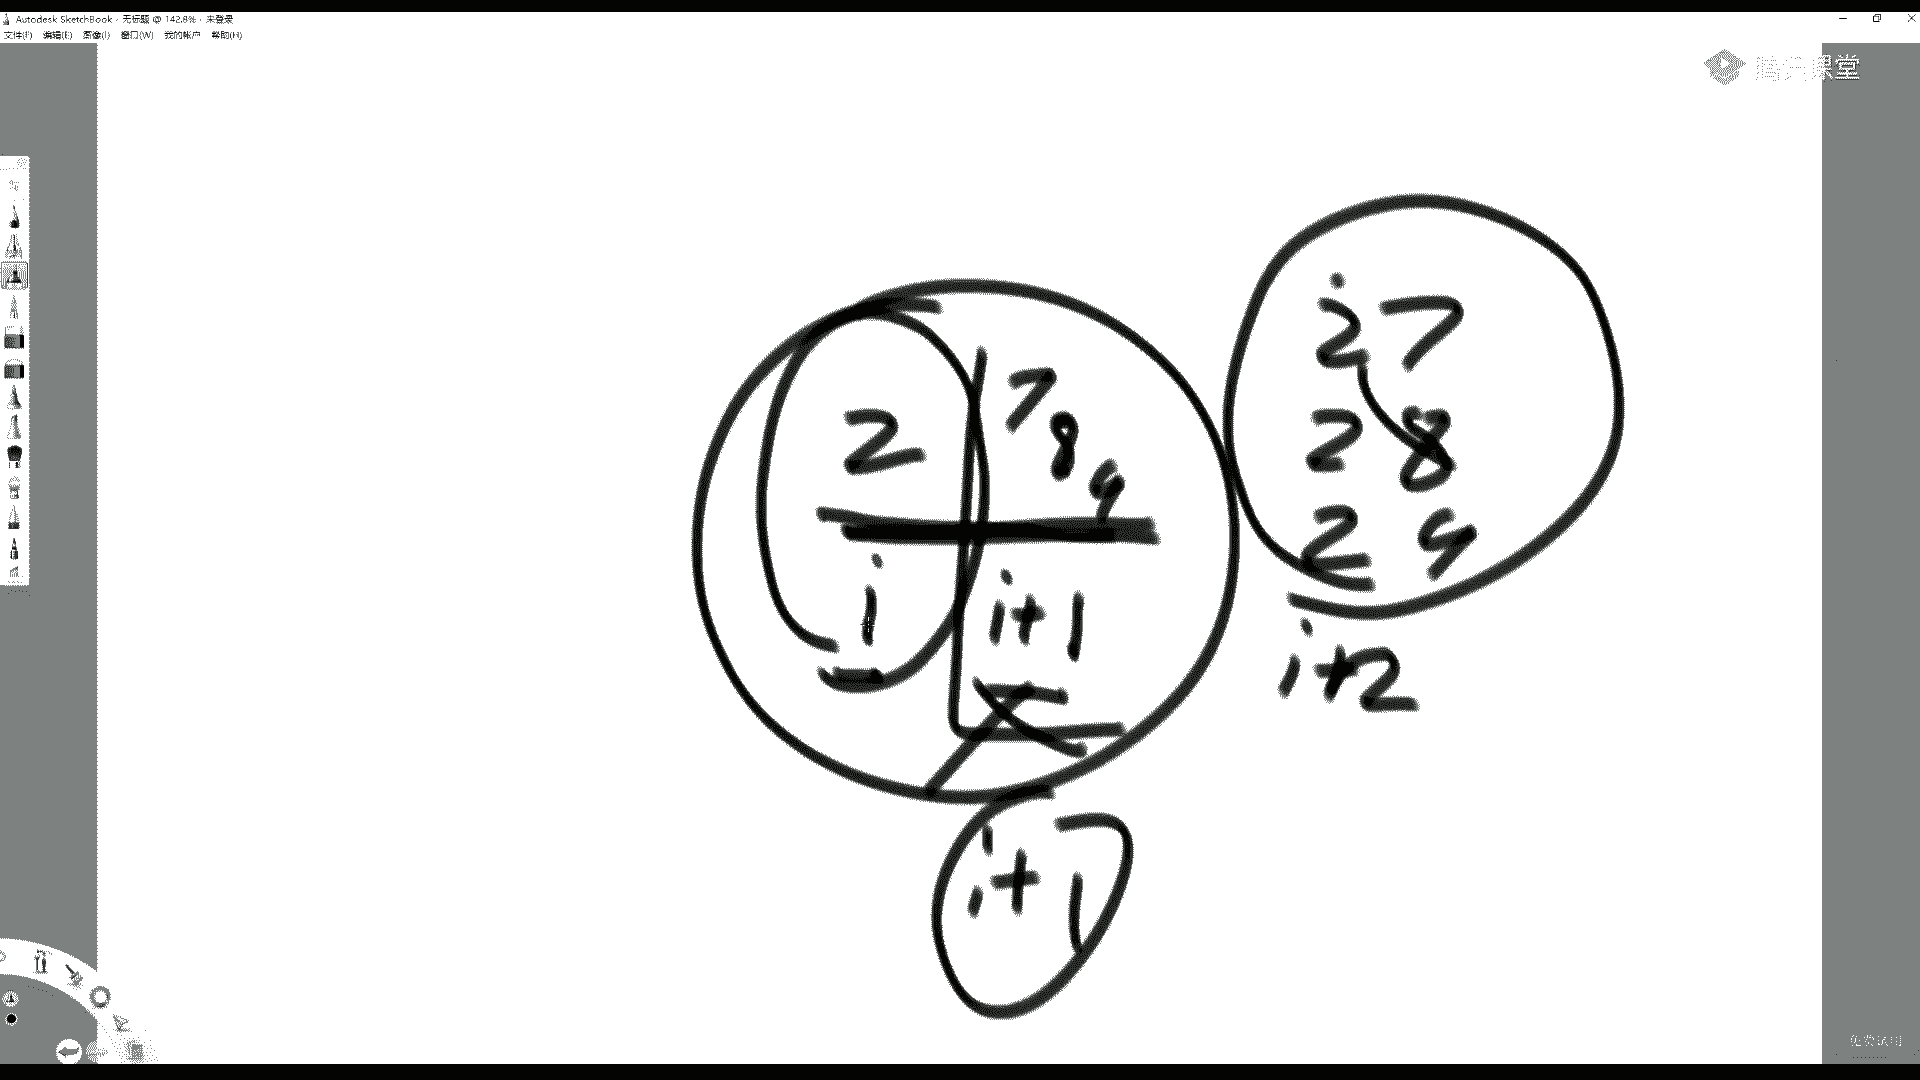 Autodesk SketchBook - 无标题 @ 142.8% - 未登录
文件(F) 编辑(E) 图像(I) 窗口(W) 我的帐户 帮助(H)
腾讯课堂
2 7 8 9
i i+1
i+1
i
2 7
2 8
2 9
i+2
免费试用